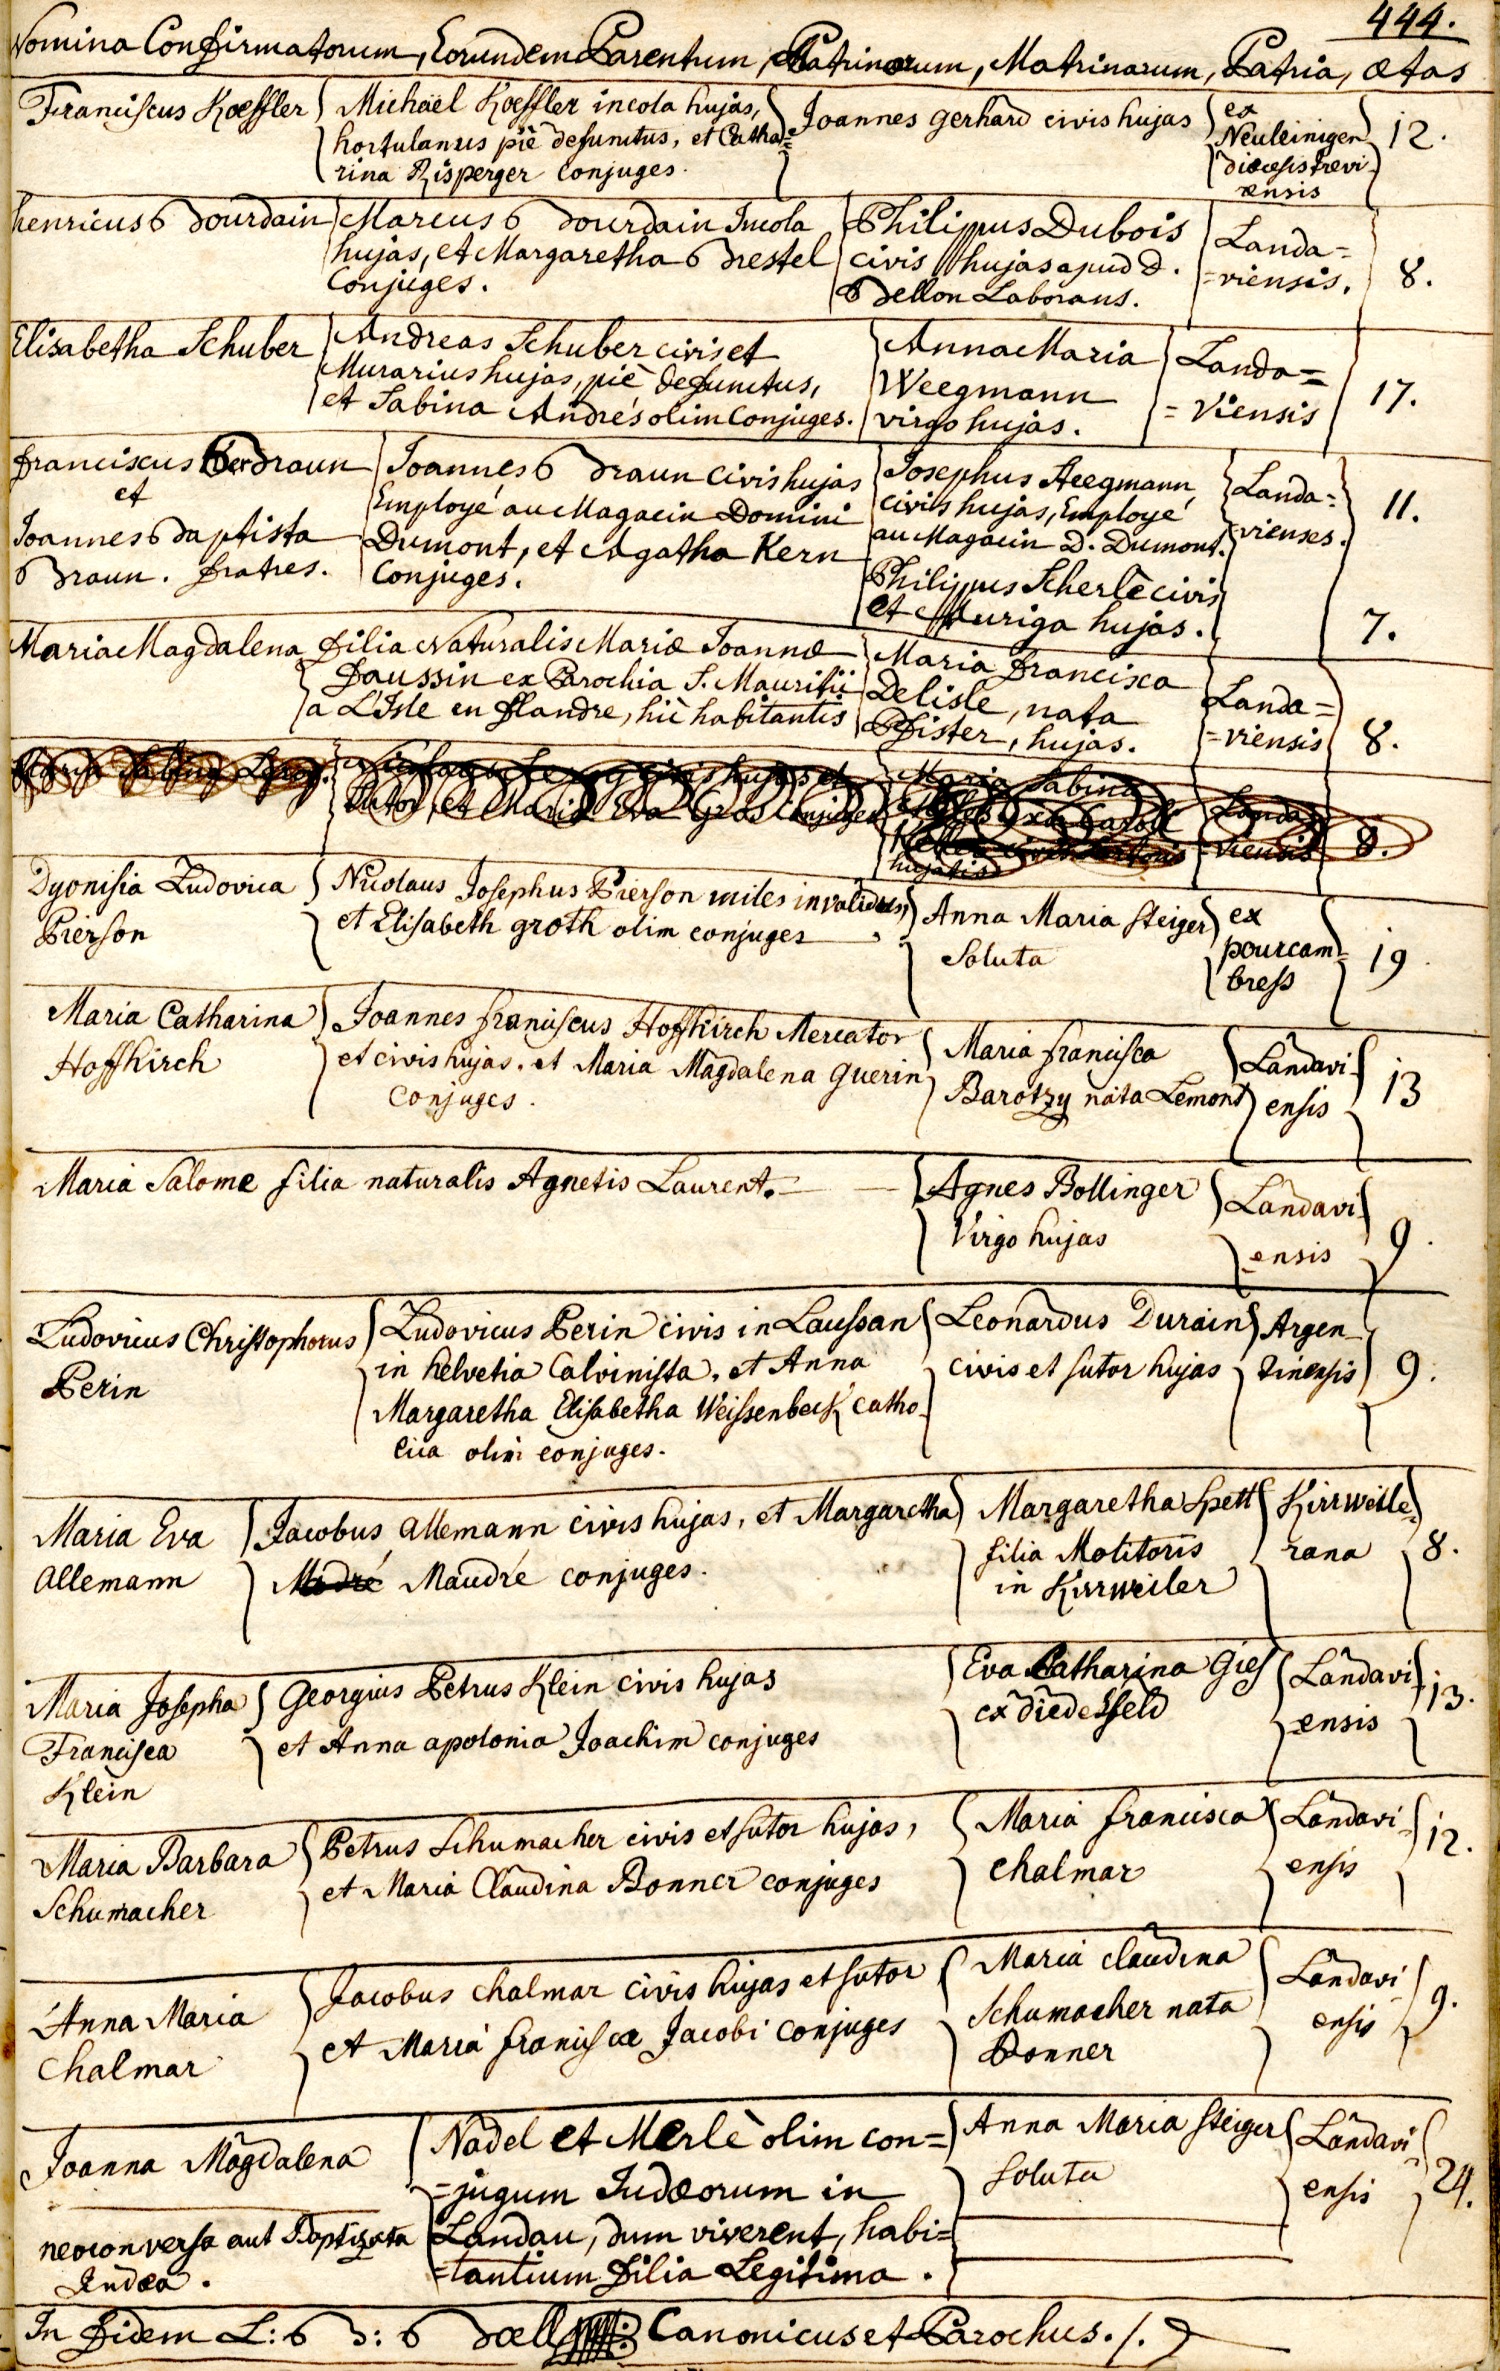 444.
Nomina Confirmatorum, Eorundem Parentum, Patrinorum, Matrinarum, Patria, ætas
Franciscus Koeffler
Michaël Koeffler incola hujas,
hortulanus piè defunctus, et Catha=
rina Risperger conjuges.
Joannes gerhard civis hujas
ex
Neuleinigen
diœcesis trevi-
rensis
12.
henricus Bourdain
Marcus Bourdain Incola
hujas, et Margaretha Brestel
Conjuges.
Philippus Dubois
civis hujas apud D.
Bellon Laborans.
Landa=
=viensis.
8.
Elisabetha Schuber
Andreas Schuber civis et
Murarius hujas, piè defunctus,
et Sabina Andrés olim Conjuges.
Anna Maria
Weegmann
virgo hujas.
Landa=
=viensis
17.
franciscus Braun
et
Joannes Baptista
Braun. fratres.
Joannes Braun Civis hujas
Employé au Magacin Domini
Dumont, et Agatha Kern
Conjuges.
Josephus Heegmann
civis hujas, Employé
au Magacin D. Dumont.
Philippus Scherlè civis
et Auriga hujas.
Landa=
=vienses.
11.
7.
Maria Magdalena
filia Naturalis Mariæ Joannæ
Faussin ex Parochia S. Mauritii
a L'Isle en flandre, hìc habitantis
Maria francisca
Delisle, nata
Pfister, hujas.
Landa=
=viensis
8.
Maria Sabina Leroy.
Leroy civis hujas et
Sutor, et Maria Eva Gros Conjuges
Maria Sabina
hujatis
Landa
viensis
8.
Dyonisia Ludovica
Pierson
Nicolaus Josephus Pierson miles invalidus,
et Elisabeth groth olim conjuges
Anna Maria Steiger
Soluta
ex
pourcam=
bress
19
Maria Catharina
Hoffkirch
Joannes franciscus Hoffkirch Mercator
et civis hujas. et Maria Magdalena Guerin
Conjuges.
Maria francisca
Barotzy nata Lemont
Landavi-
ensis
13
Maria Salome filia naturalis Agnetis Laurent.
Agnes Bollinger
Virgo hujas
Landavi-
ensis
9.
Ludovicus Christophorus
Perin
Ludovicus Perin civis in Laussan
in helvetia Calvinista, et Anna
Margaretha Elisabetha Weissenbeck catho-
lica olim conjuges.
Leonardus Durain
civis et sutor hujas
Argen-
tinensis
9.
Maria Eva
Allemann
Jacobus Allemann civis hujas, et Margaretha
Modré Maudré conjuges.
Margaretha Spett
filia Molitoris
in Kirrweiler
Kirrweile=
rana
8.
Maria Josepha
Francisca
Klein
Georgius Petrus Klein civis hujas
et Anna apolonia Joachim conjuges
Eva Catharina Gies
ex diedesfeld
Landavi-
ensis
13.
Maria Barbara
Schumacher
Petrus Schumacher civis et sutor hujas,
et Maria Claudina Bonner conjuges
Maria francisca
Chalmar
Landavi-
ensis
12.
Anna Maria
Chalmar
Jacobus Chalmar civis hujas et sutor
et Maria francisca Jacobi Conjuges
Maria claudina
Schumacher nata
Bonner
Landavi
ensis
9.
Joanna Magdalena
neoconversa aut Baptizata
Judæa.
Nadel et Merlè olim con=
=jugum Judæorum in
Landau, dum viverent, habi=
=tantium filia Legitima.
Anna Maria Steiger
Soluta
Landavi-
ensis
24.
In fidem L: B: Boell Canonicus et Parochus.